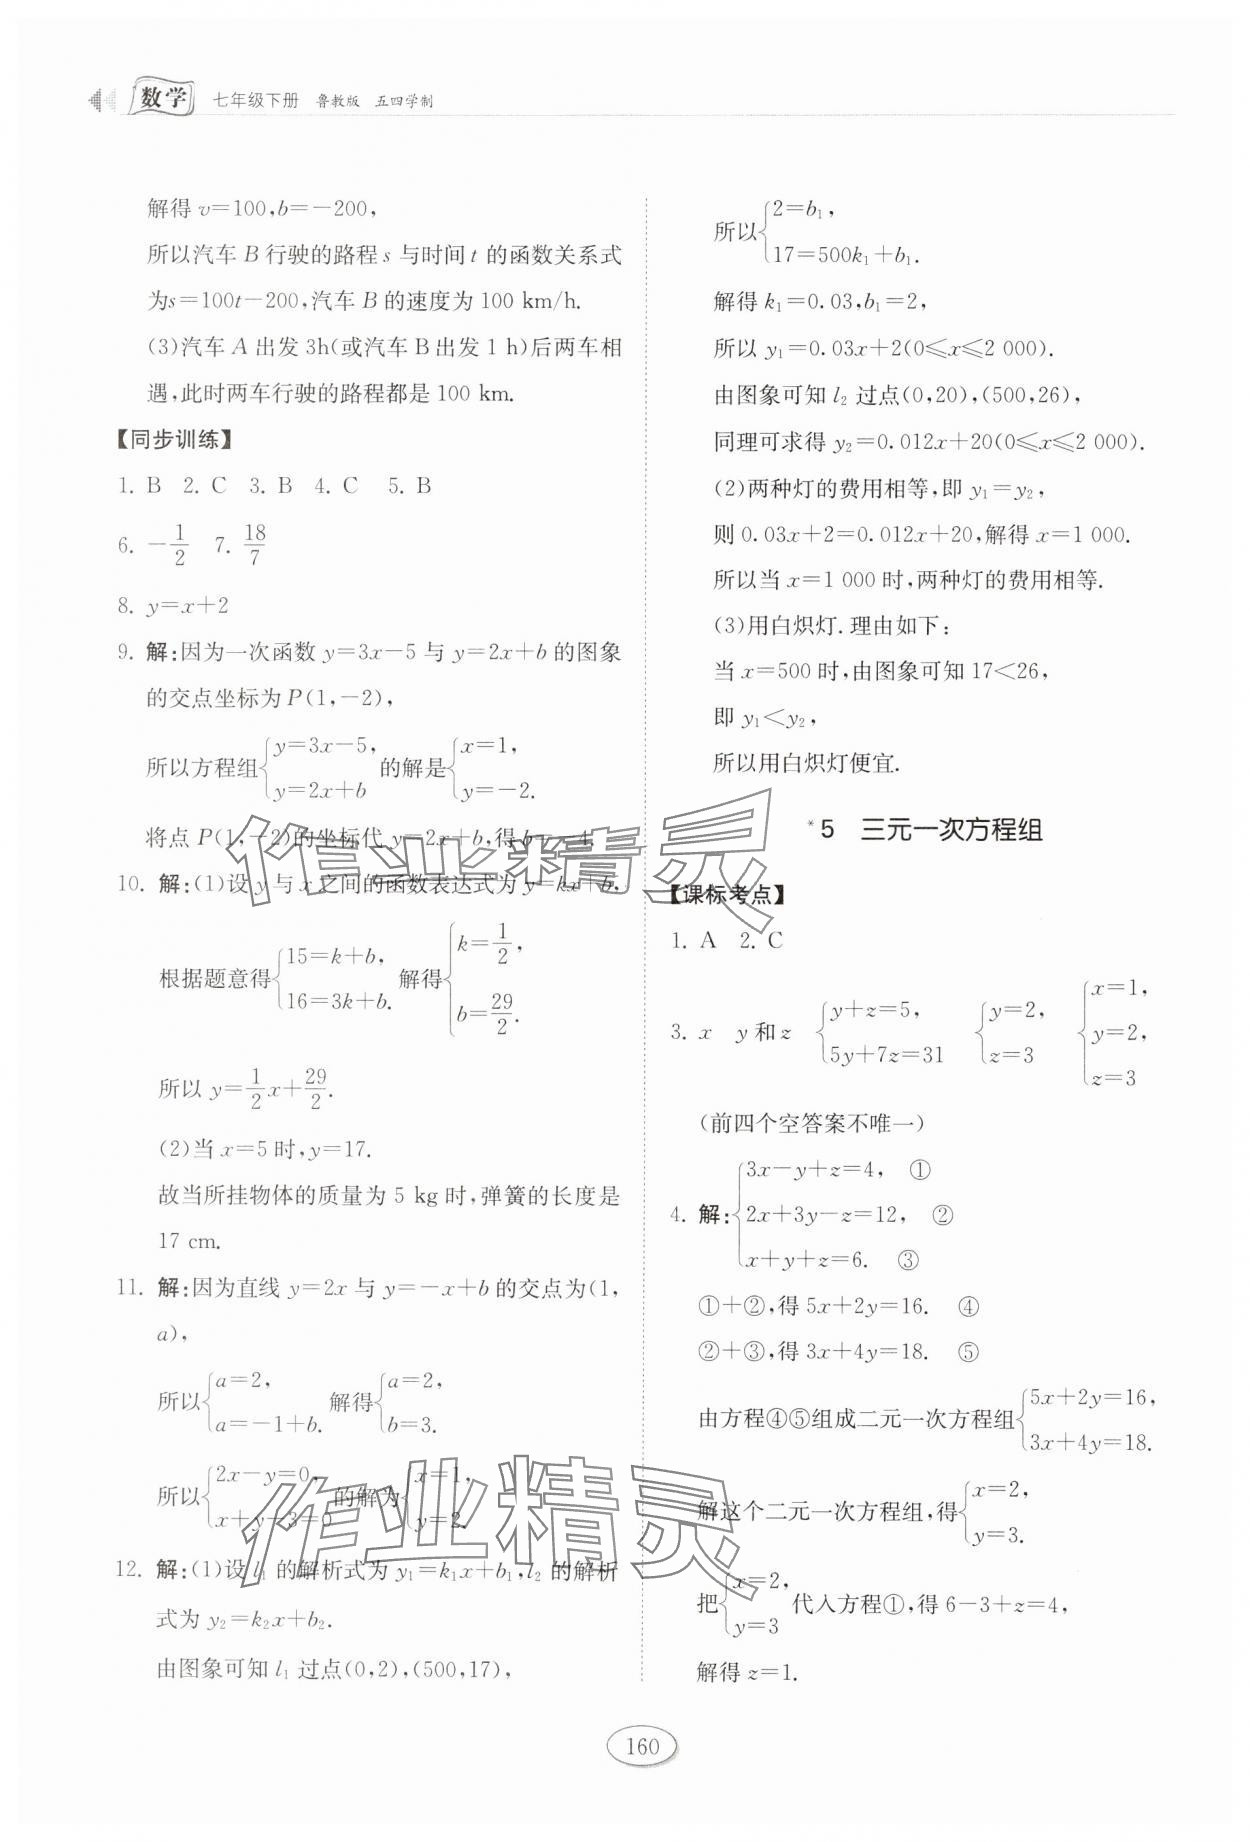 数学 七年级下册 鲁教版 五四学制
解得 v=100,b=-200,
所以汽车 B 行驶的路程 s 与时间 t 的函数关系式
为s=100t-200,汽车 B 的速度为 100 km/h.
(3)汽车 A 出发 3h(或汽车 B 出发 1 h)后两车相
遇,此时两车行驶的路程都是 100 km.
【同步训练】
1. B 2. C 3. B 4. C 5. B
6. -1/2 7. 18/7
8. y=x+2
9. 解:因为一次函数 y=3x-5 与 y=2x+b 的图象
的交点坐标为 P(1,-2),
所以方程组{y=3x-5, y=2x+b 的解是{x=1, y=-2.
将点 P(1,-2)的坐标代 y=2x+b,得 b=-4.
10. 解:(1)设 y 与 x 之间的函数表达式为 y=kx+b,
根据题意得{15=k+b, 16=3k+b. 解得{k=1/2, b=29/2.
所以 y=1/2x+29/2.
(2)当 x=5 时,y=17.
故当所挂物体的质量为 5 kg 时,弹簧的长度是
17 cm.
11. 解:因为直线 y=2x 与 y=-x+b 的交点为(1,
a),
所以{a=2, a=-1+b. 解得{a=2, b=3.
所以{2x-y=0, x+y-3=0 的解为{x=1, y=2.
12. 解:(1)设 l₁ 的解析式为 y₁=k₁x+b₁,l₂ 的解析
式为 y₂=k₂x+b₂.
由图象可知 l₁ 过点(0,2),(500,17),
所以{2=b₁, 17=500k₁+b₁.
解得 k₁=0.03,b₁=2,
所以 y₁=0.03x+2(0⩽x⩽2 000).
由图象可知 l₂ 过点(0,20),(500,26),
同理可求得 y₂=0.012x+20(0⩽x⩽2 000).
(2)两种灯的费用相等,即 y₁=y₂,
则 0.03x+2=0.012x+20,解得 x=1 000.
所以当 x=1 000 时,两种灯的费用相等.
(3)用白炽灯.理由如下:
当 x=500 时,由图象可知 17<26,
即 y₁<y₂,
所以用白炽灯便宜.
*5 三元一次方程组
【课标考点】
1. A 2. C
3. x y 和 z {y+z=5, 5y+7z=31 {y=2, z=3 {x=1, y=2, z=3
(前四个空答案不唯一)
4. 解:{3x-y+z=4, ① 2x+3y-z=12, ② x+y+z=6. ③
①+②,得 5x+2y=16. ④
②+③,得 3x+4y=18. ⑤
由方程④⑤组成二元一次方程组{5x+2y=16, 3x+4y=18.
解这个二元一次方程组,得{x=2, y=3.
把{x=2, y=3 代入方程①,得 6-3+z=4,
解得 z=1.
160
作业精灵
作业精灵